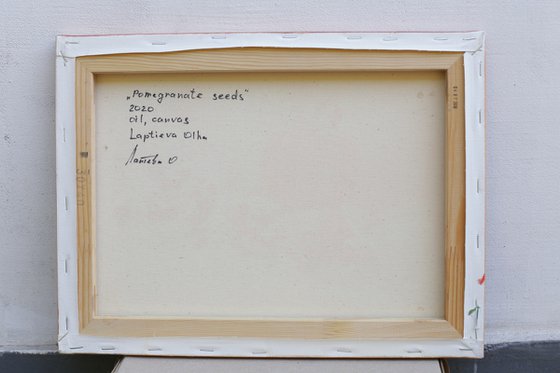 „Pomegranate seeds"
2020
oil, canvas
Laptieva Olha
Лаптєва О